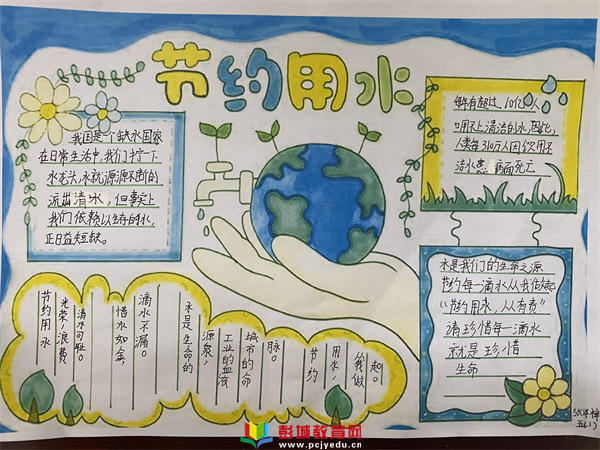 节约用水
我国是一个缺水国家
在日常生活中,我们拧一下
水龙头,水就源源不断的
流出清水,但事实上
我们依赖以生存的水,
正日益短缺。
每年有超过10亿人
喝不上清洁的水,因此,
人类每年310万人因饮用不
洁水患病而死亡
水是我们的生命之源
节约每一滴水从我做起
"节约用水,人人有责"
请珍惜每一滴水
就是珍惜
生命
节约用水
光荣,浪费
清水可耻。
惜水如金,
滴水不漏。
水是生命的
源泉,
工业的血液
城市的命
脉。
节约
用水,
从我做
起。
五(1)
彭城教育网
www.pcjyedu.cn